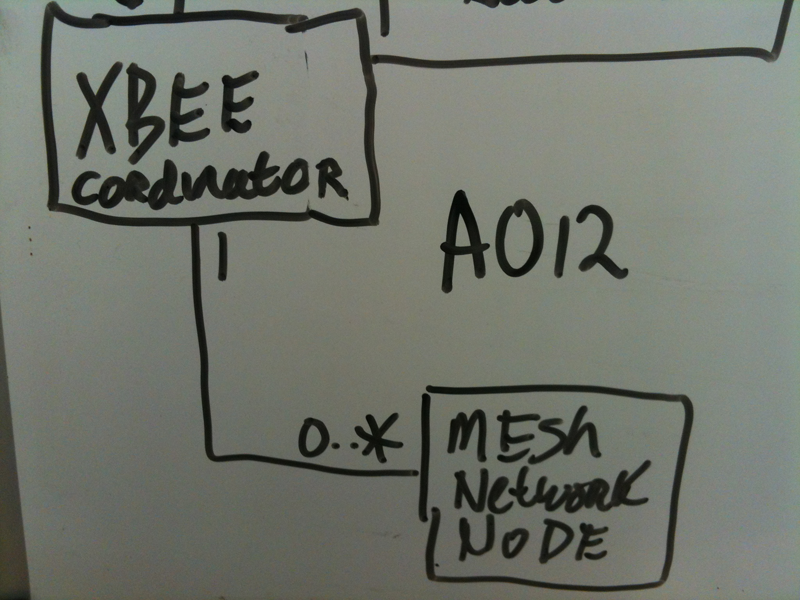 XBEE
CORDINATOR
1
A012
0..*
MESh
NetwoRK
NODE